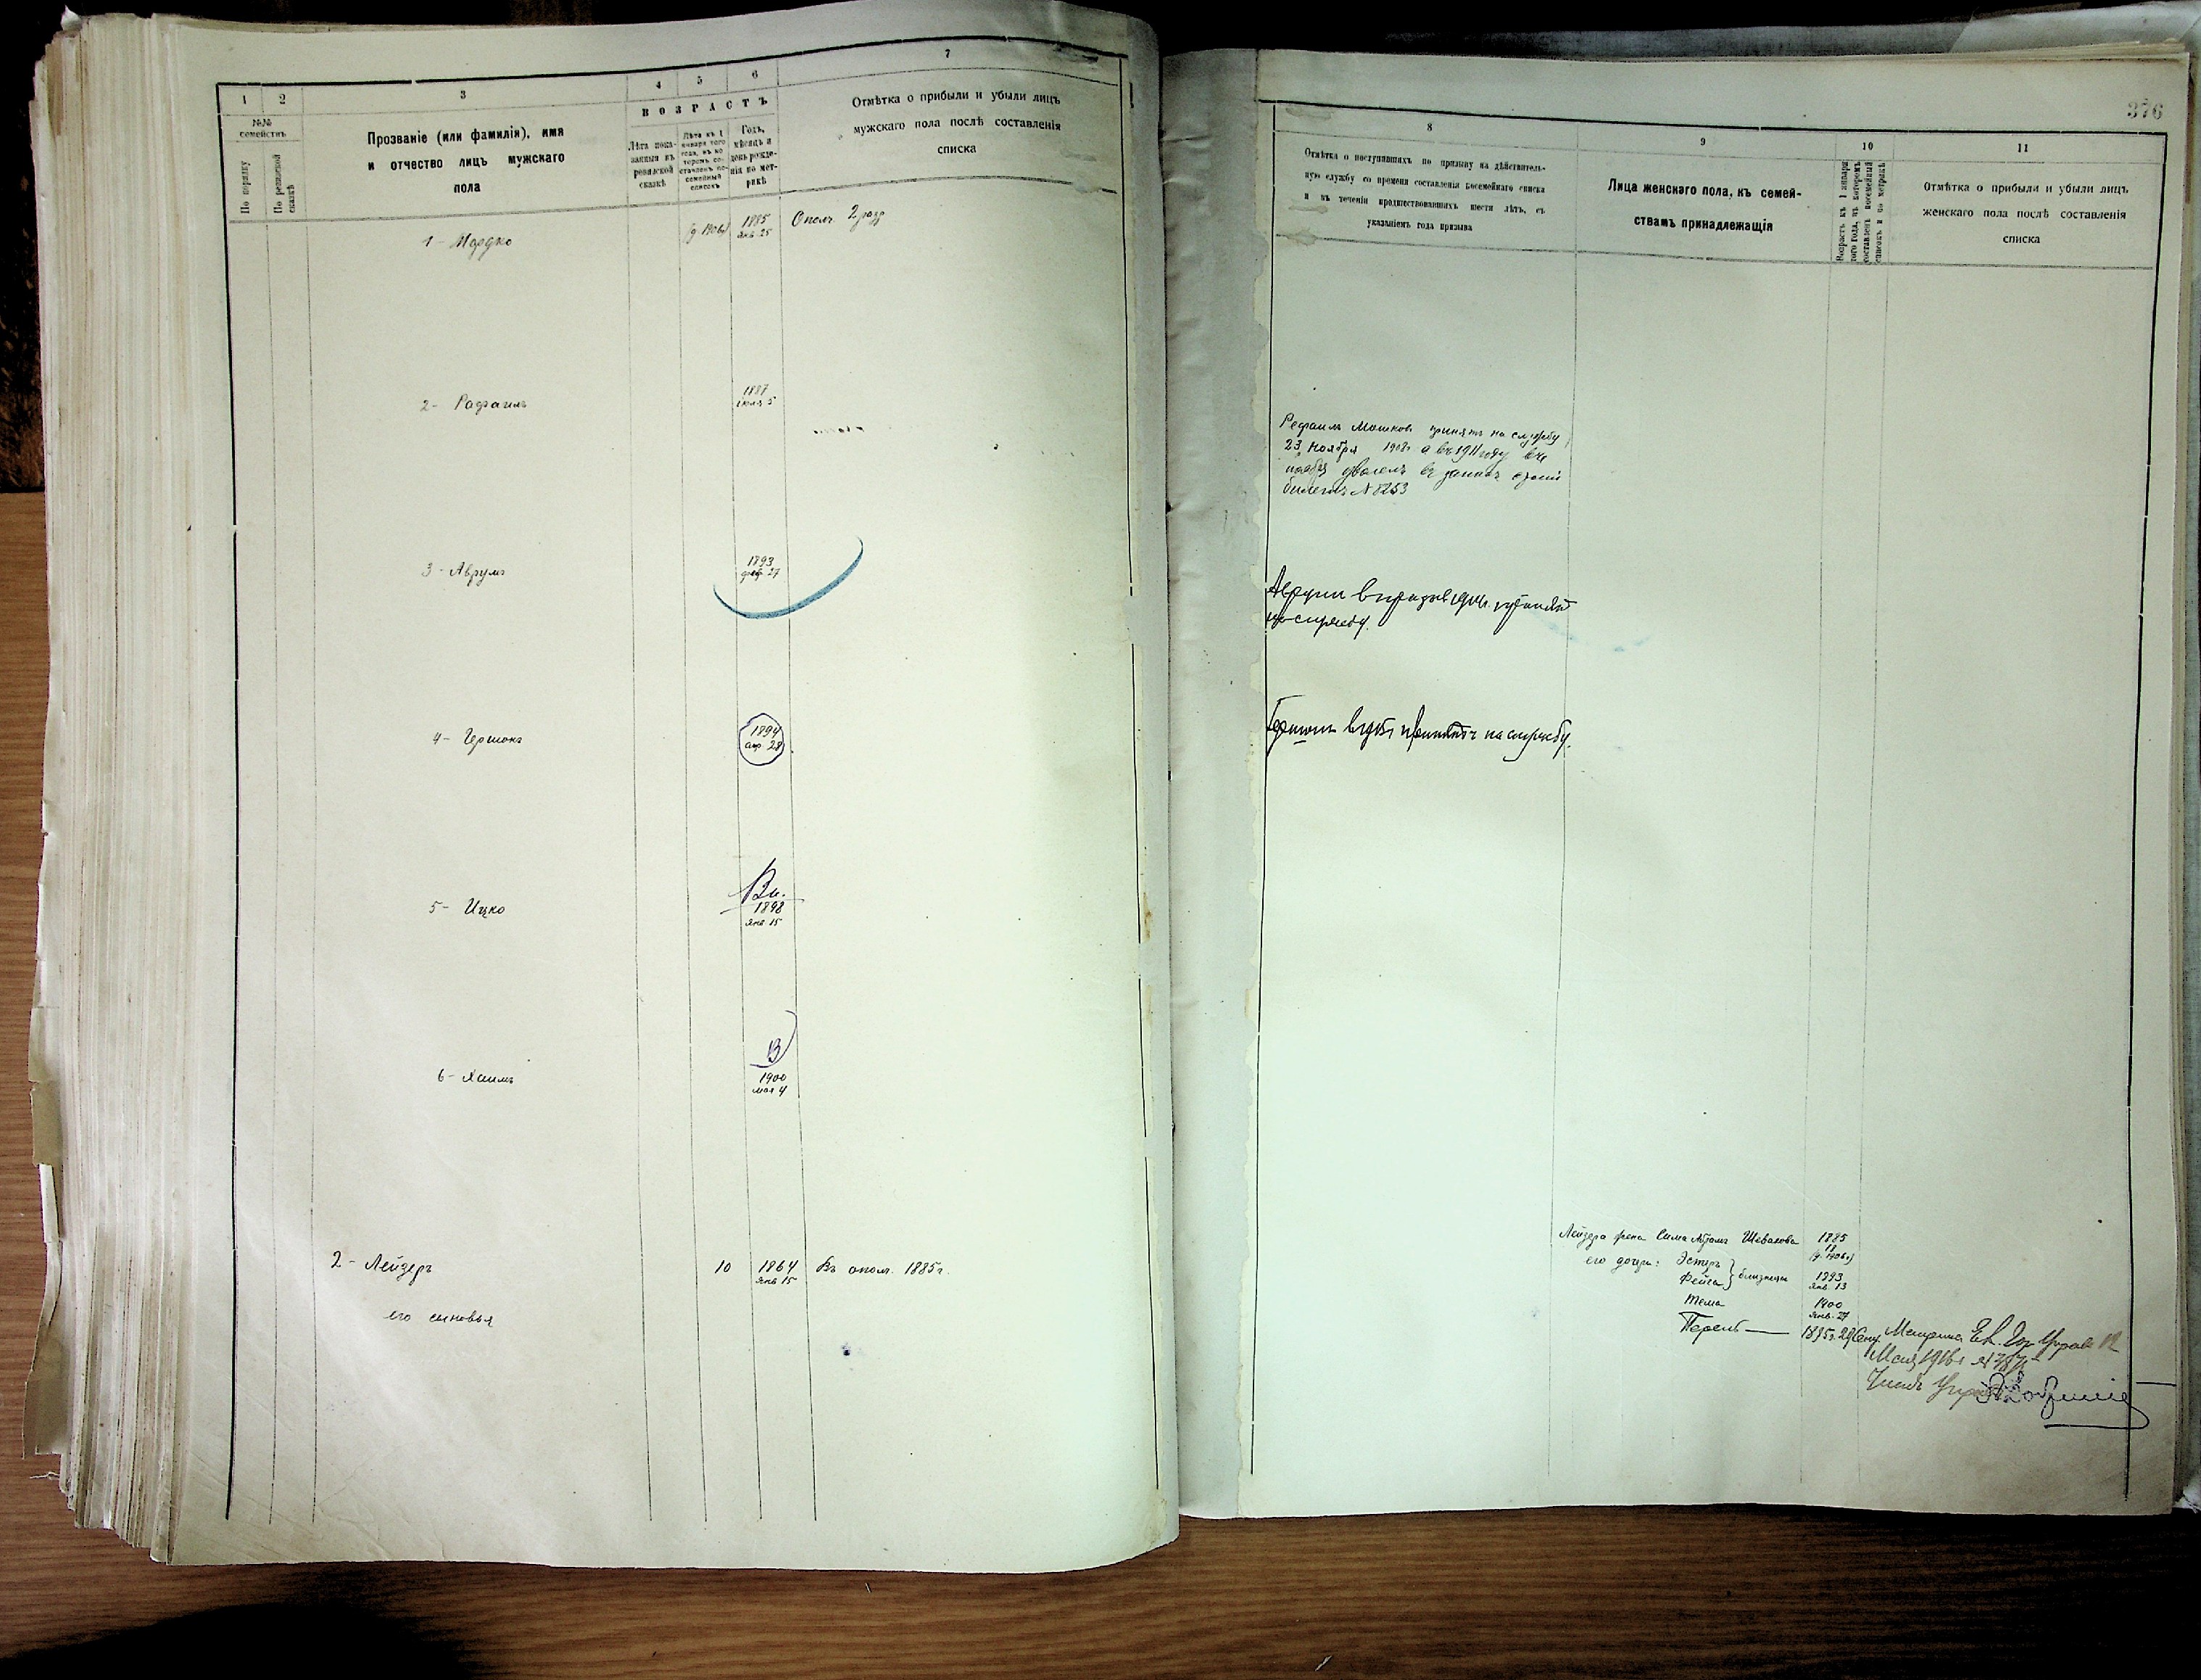 1
2
3
4
5
6
7
№№ семействъ
По порядку
По ревизской сказкѣ
Прозваніе (или фамилія), имя
и отчество лицъ мужскаго
пола
ВОЗРАСТЪ
Лѣта пока-
занныя въ
ревизской
сказкѣ
Лѣта къ 1
января того
года, въ ко-
торомъ со-
ставленъ по-
семейный
списокъ
Годъ,
мѣсяцъ и
день рожде-
нія по мет-
рикѣ
Отмѣтка о прибыли и убыли лицъ
мужскаго пола послѣ составленія
списка
1 - Мордко
1885
янв 25
Ополч. 2 разр
2 - Рафаилъ
1887
іюля 5
3 - Аврумъ
1893
фев 27
4 - Гершонъ
1894
апр 28
5 - Ицко
1898
янв 15
6 - Хаимъ
В
1900
мая 4
2 - Лейзеръ
10
1864
янв 15
Въ ополч. 1885 г.
его сыновья
376
8
9
10
11
Отмѣтка о поступившихъ по призыву на дѣйствитель-
ную службу со времени составленія посемейнаго списка
и въ теченіи предшествовавшихъ шести лѣтъ, съ
указаніемъ года призыва
Лица женскаго пола, къ семей-
ствамъ принадлежащія
Возрастъ къ 1 января
того года, въ которомъ
составленъ посемейный
списокъ и по метрикѣ
Отмѣтка о прибыли и убыли лицъ
женскаго пола послѣ составленія
списка
Рефаилъ Мошковъ принятъ на службу
23 ноября 1908г а въ 1911 году въ
ноябрѣ уволенъ въ запасъ арміи
билетъ № 8253
Аврумъ въ призывъ 1914г принятъ
на службу.
Гершонъ въ 1915г принятъ на службу.
Лейзера жена Сима Абрамъ Шевахова
1885
его дочери: Эстеръ
Фейга
близнецы
1893
янв 13
Тема
1900
янв 27
Перель — 1895г. 29
Метрика Ек. Гор. Управы 12
Мая 1916г
Членъ Управы